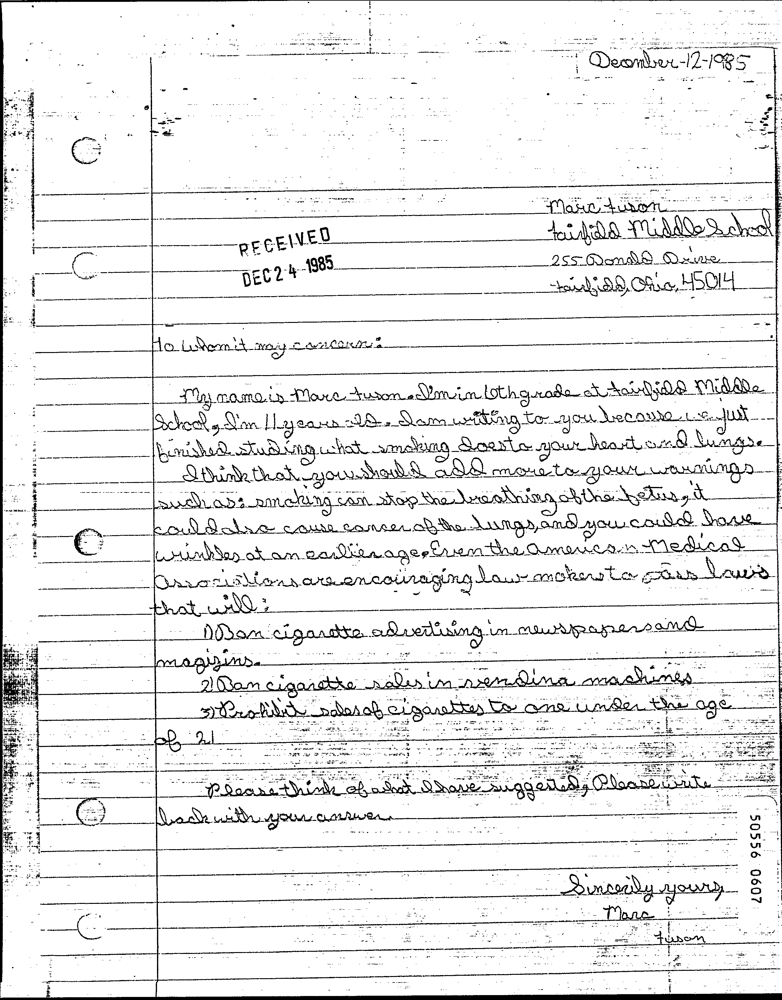 December-12-1985
Marc Fuson
Fairfield Middle School
255 Donald Drive
Fairfield, Ohio, 45014
RECEIVED
DEC 24 1985
To Whom it may concern:
My name is Marc Fuson. I'm in 6th grade at Fairfield Middle
School, I'm 11 years old. I am writing to you because we just
finished studing what smoking does to your heart and lungs.
I think that you should add more to your warnings
such as: smoking can stop the breathing of the fetus, it
could also cause cancer of the lungs, and you could have
wrinkles at an earlier age. Even the American Medical
Associations are encouraging law makers to pass laws
that will:
1) Ban cigarette advertising in newspapers and
magizins.
2) Ban cigarette sales in vending machines
3) Prohibit sales of cigarettes to one under the age
of 21
Please think of what I have suggested, Please write
back with your answer.
Sincerily yours,
Marc
Fuson
50556 0607